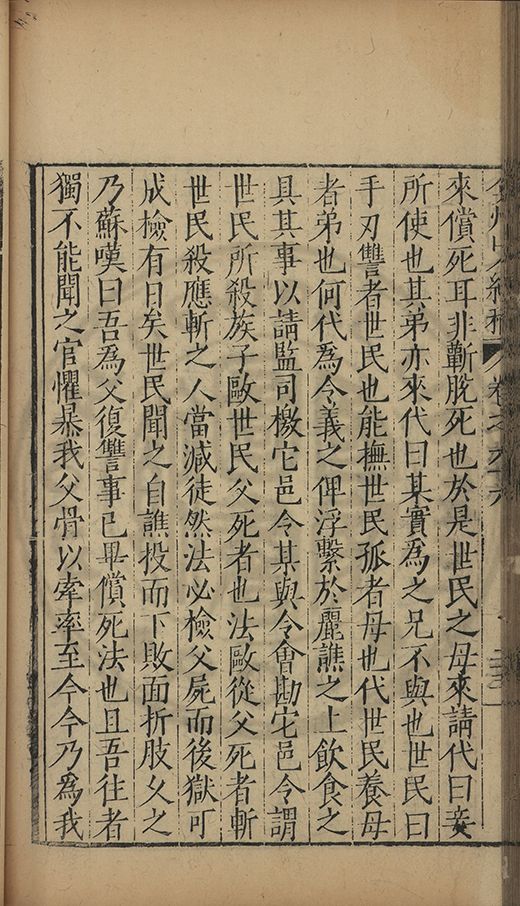 弇州山人續稿 卷之六十六
來償死耳非蘄脫死也於是世民之母來請代曰妾
所使也其弟亦來代曰某實為之兄不與也世民曰
手刃讐者世民也能撫世民孤者母也代世民養母
者弟也何代為令義之俾浮繫於麗譙之上飲食之
具其事以請監司檄它邑令某與令會勘它邑令謂
世民所殺族子毆世民父死者也法毆從父死者斬
世民殺應斬之人當減徒然法必檢父屍而後獄可
成檢有日矣世民聞之自譙投而下敗面折肢久之
乃蘇嘆曰吾為父復讐事已畢償死法也且吾往者
獨不能聞之官懼暴我父骨以牽率至今今乃為我